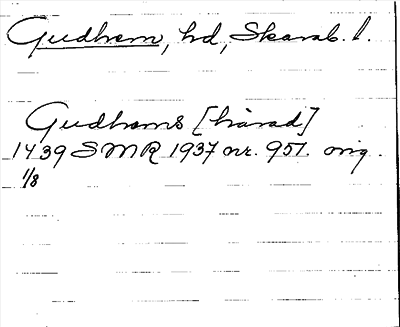 Gudhem, hd, Skarab. l.
Gudhems [härad]
1439 SMR 1937 nr. 951. orig.
1/8